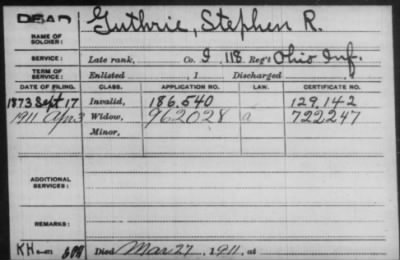 DEAD
Guthrie, Stephen R.
NAME OF SOLDIER:
SERVICE: Late rank, Co. I, 118 Reg't Ohio Inf.
TERM OF SERVICE: Enlisted , 1 Discharged
DATE OF FILING. CLASS. APPLICATION NO. LAW. CERTIFICATE NO.
1873 Sept 17 Invalid, 186.540 129.142
1911 Apr 3 Widow, 962028 a 722247
Minor,
ADDITIONAL SERVICES:
REMARKS:
KH Died Mar 27, 1911, at